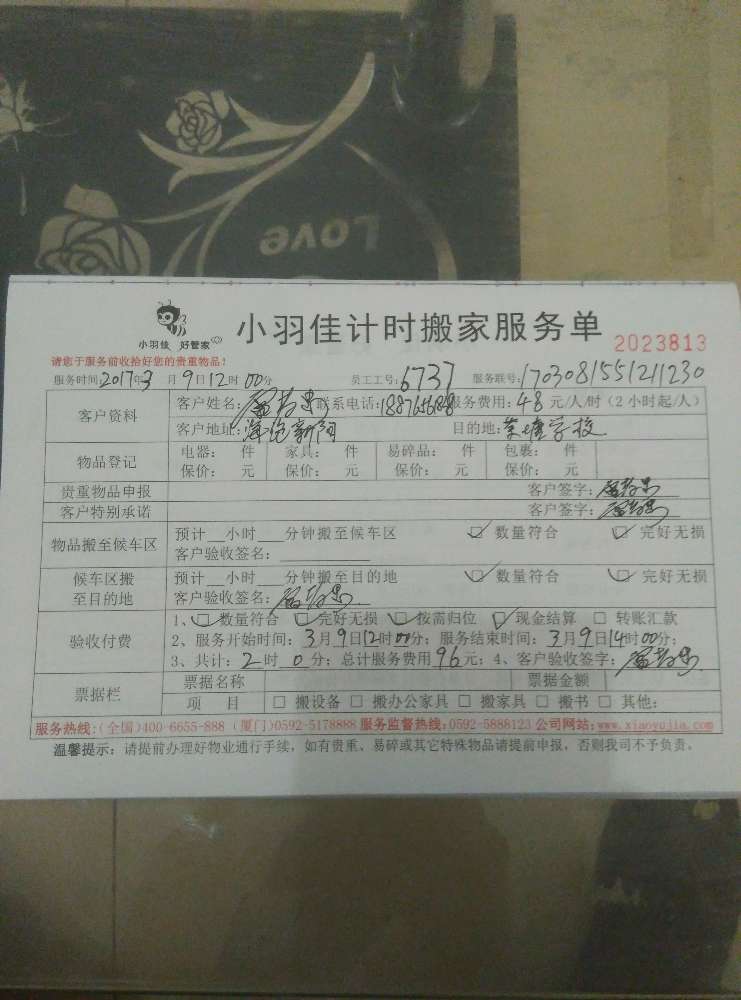 Love
小羽佳 好管家
小羽佳计时搬家服务单
2023813
请您于服务前收拾好您的贵重物品！
服务时间：2017年3月9日12时00分 员工工号：6737 服务联号：1703081551211230
客户资料
客户姓名： 联系电话： 服务费用：48元/人/时（2小时起/人）
客户地址： 目的地：
物品登记
电器： 件 家具： 件 易碎品： 件 包裹： 件
保价： 元 保价： 元 保价： 元 保价： 元
贵重物品申报 客户签字：
客户特别承诺 客户签字：
物品搬至候车区
预计__小时___分钟搬至候车区 ☑ 数量符合 ☑ 完好无损
客户验收签名：
候车区搬至目的地
预计__小时___分钟搬至目的地 ☑ 数量符合 ☑ 完好无损
客户验收签名：
验收付费
1、☑ 数量符合 ☑ 完好无损 ☑ 按需归位 ☑ 现金结算 □ 转账汇款
2、服务开始时间：3月9日12时00分；服务结束时间：3月9日14时00分；
3、共计：2时0分；总计服务费用96元；4、客户验收签字：
票据栏
票据名称 票据金额
项 目 □ 搬设备 □ 搬办公家具 □ 搬家具 □ 搬书 □ 其他：
服务热线：（全国）400-6655-888（厦门）0592-5178888 服务监督热线：0592-5888123 公司网站：www.xiaoyujia.com
温馨提示：请提前办理好物业通行手续，如有贵重、易碎或其它特殊物品请提前申报，否则我司不予负责。